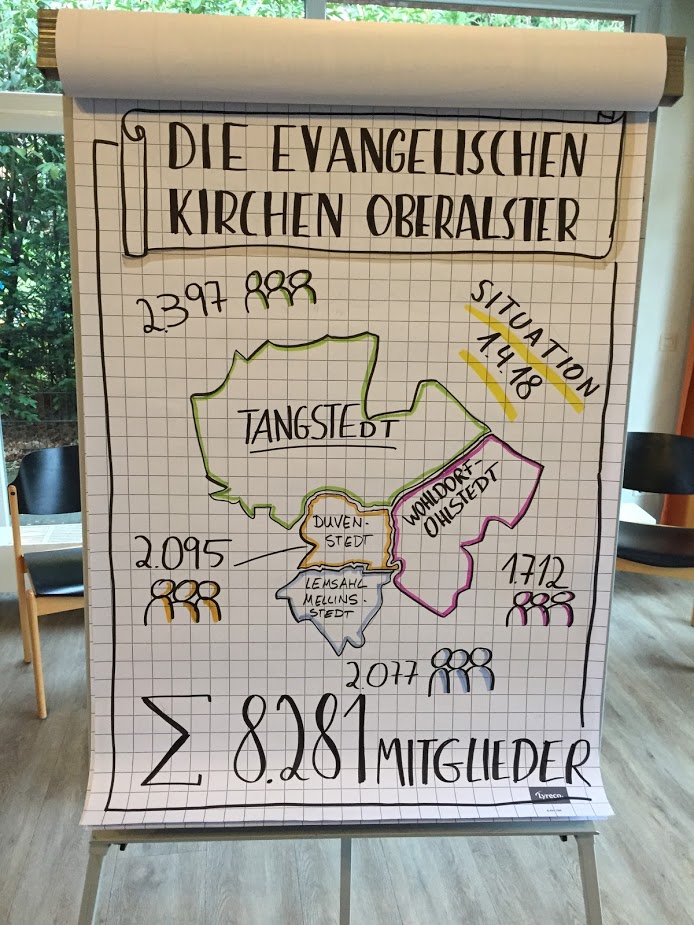 DIE EVANGELISCHEN
KIRCHEN OBERALSTER
2.397
SITUATION
1.4.18
TANGSTEDT
WOHLDORF-
OHLSTEDT
DUVEN-
STEDT
2.095
LEMSAHL
MELLINS-
STEDT
1.712
2.077
Σ 8.281 MITGLIEDER
Lyreco